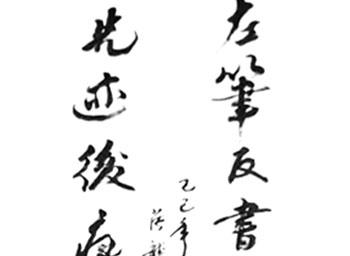 左筆反書
乙巳年
先迹後